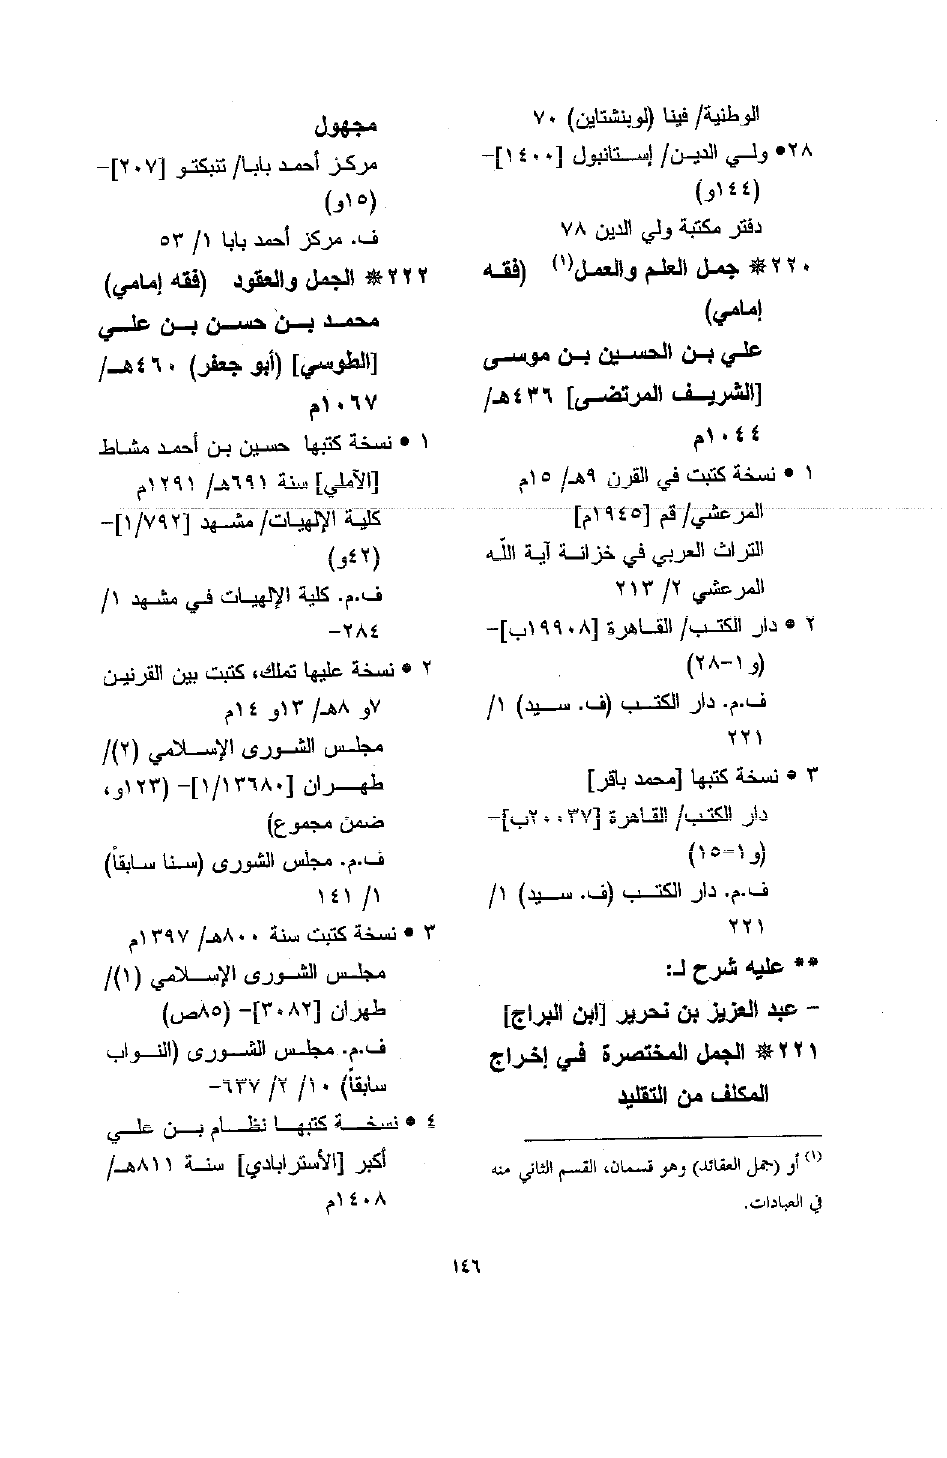 الوطنية/ فينا (لوبنشتاين) ٧٠
٢٨• ولي الدين/ إستانبول [١٤٠٠]-
(١٤٤و)
دفتر مكتبة ولي الدين ٧٨
٢٢٠* جمل العلم والعمل(١) (فقه
إمامي)
علي بن الحسين بن موسى
[الشريف المرتضى] ٤٣٦هـ/
١٠٤٤م
١ • نسخة كتبت في القرن ٩هـ/ ١٥م
المرعشي/ قم [١٩٤٥م]
التراث العربي في خزانة آية اللّه
المرعشي ٢/ ٢١٣
٢ • دار الكتب/ القاهرة [١٩٩٠٨ب]-
(و١-٢٨)
ف.م. دار الكتب (ف. سيد) ١/
٢٢١
٣ • نسخة كتبها [محمد باقر]
دار الكتب/ القاهرة [٢٠٠٣٧ب]-
(و١-١٥)
ف.م. دار الكتب (ف. سيد) ١/
٢٢١
** عليه شرح لـ:
- عبد العزيز بن نحرير [ابن البراج]
٢٢١* الجمل المختصرة في إخراج
المكلف من التقليد
(١) أو (جمل العقائد) وهو قسمان، القسم الثاني منه
في العبادات.
مجهول
مركز أحمد بابا/ تنبكتو [٢٠٧]-
(١٥و)
ف. مركز أحمد بابا ١/ ٥٣
٢٢٢* الجمل والعقود (فقه إمامي)
محمد بن حسن بن علي
[الطوسي] (أبو جعفر) ٤٦٠هـ/
١٠٦٧م
١ • نسخة كتبها حسين بن أحمد مشاط
[الآملي] سنة ٦٩١هـ/ ١٢٩١م
كلية الإلهيات/ مشهد [١/٧٩٢]-
(٤٢و)
ف.م. كلية الإلهيات في مشهد ١/
٢٨٤-
٢ • نسخة عليها تملك، كتبت بين القرنين
٧و ٨هـ/ ١٣و ١٤م
مجلس الشورى الإسلامي (٢)/
طهران [١/١٣٦٨٠]- (١٢٣و،
ضمن مجموع)
ف.م. مجلس الشورى (سنا سابقاً)
١/ ١٤١
٣ • نسخة كتبت سنة ٨٠٠هـ/ ١٣٩٧م
مجلس الشورى الإسلامي (١)/
طهران [٣٠٨٢]- (٨٥ص)
ف.م. مجلس الشورى (النواب
سابقاً) ١٠/ ٢/ ٦٣٧-
٤ • نسخة كتبها نظام بن علي
أكبر [الأسترابادي] سنة ٨١١هـ/
١٤٠٨م
١٤٦